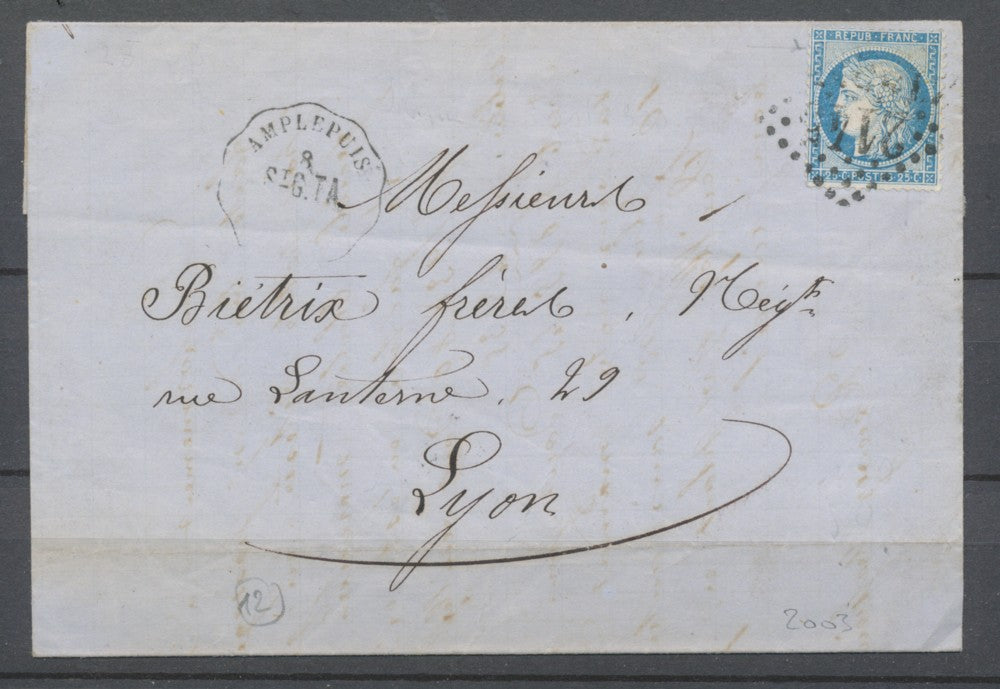 REPUB·FRANC
25·C·POSTES·25·C
AMPLEPUIS
8
ST G.TA
Messieurs
Biétrix frères, Négts
rue Lanterne, 29
Lyon
12
2003